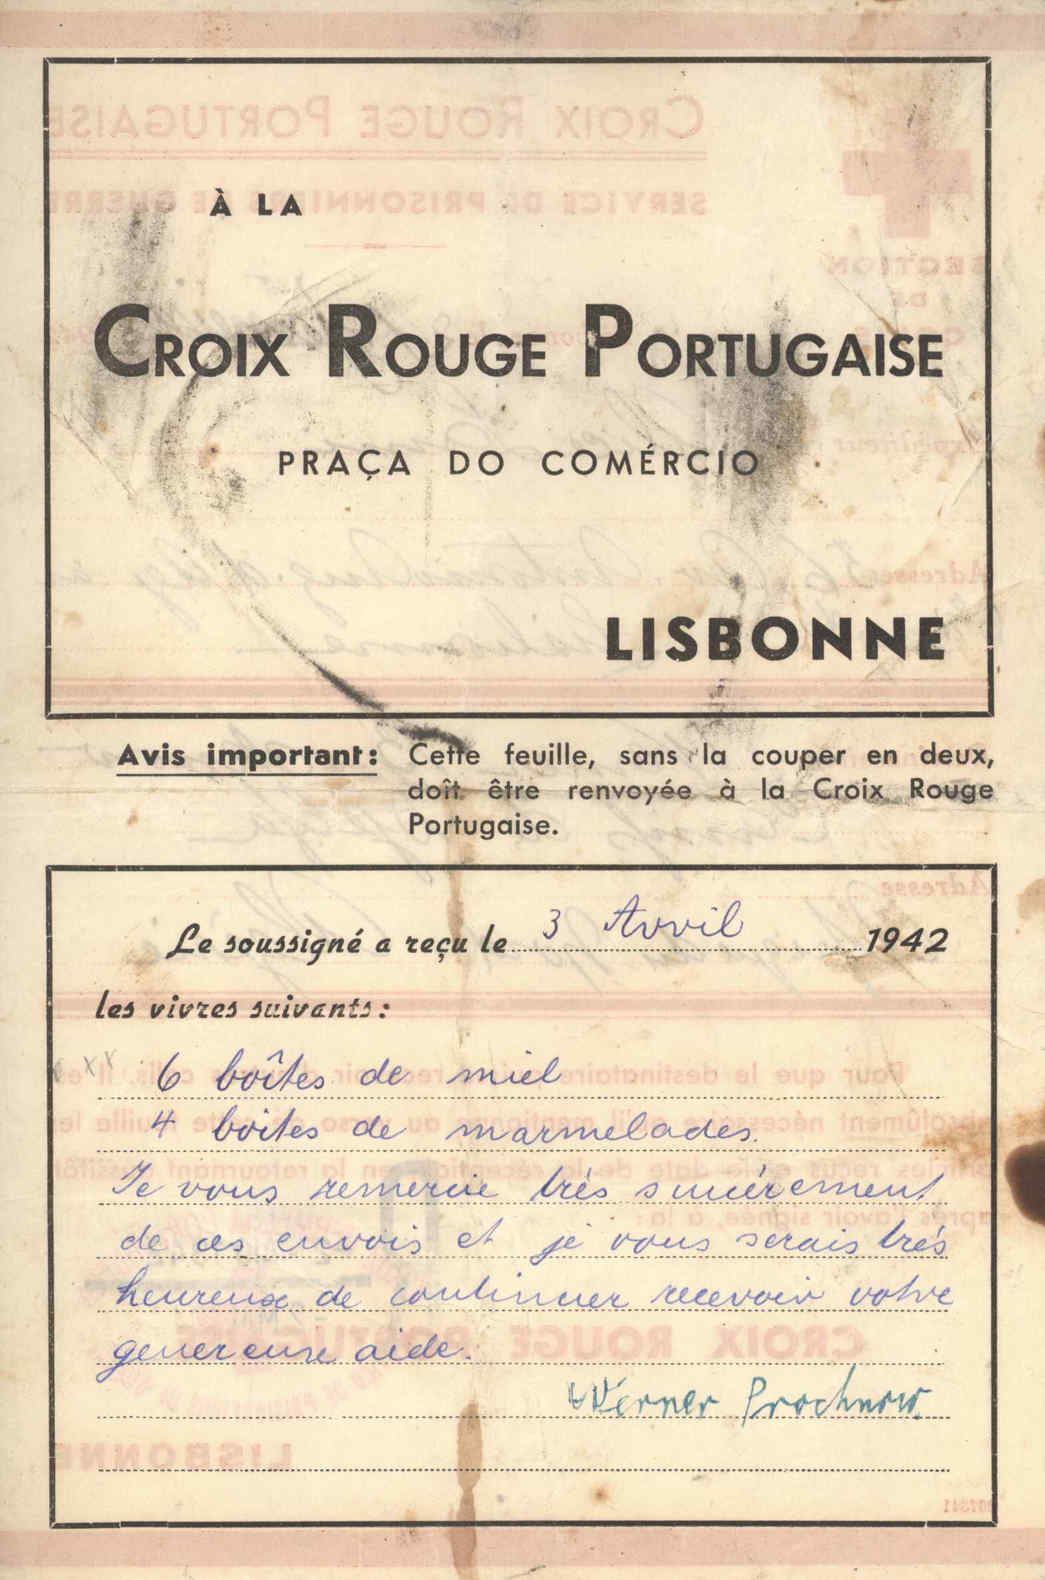 À LA
CROIX ROUGE PORTUGAISE
PRAÇA DO COMÉRCIO
LISBONNE
Avis important: Cette feuille, sans la couper en deux,
doît être renvoyée à la Croix Rouge
Portugaise.
Le soussigné a reçu le 3 Avril 1942
les vivres suivants:
6 boîtes de miel
4 boites de marmelades.
Je vous remercie très sincèrement
de ces envois et je vous serais très
heureux de continuer recevoir votre
genereuse aide.
Werner Prochnow.